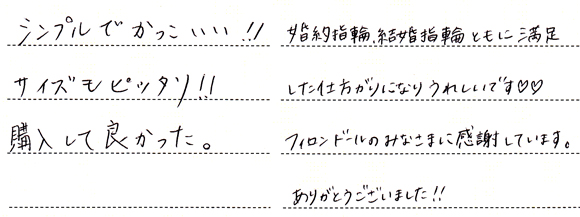 シンプルでかっこいい!!
サイズもピッタリ!!
購入して良かった。
婚約指輪、結婚指輪ともに満足
した仕方がりになりうれしいです♡♡
フィロンドールのみなさまに感謝しています。
ありがとうございました!!